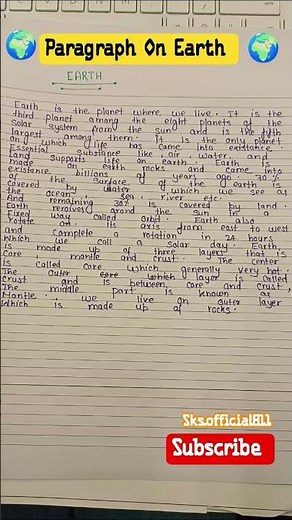 Paragraph On Earth
EARTH
Earth is the planet where we live. It is the
third planet among the eight planets of the
solar system from the sun and is the fifth
largest among them. It is the only planet
on which life has came into existance.
Essential substance like, air, water, and
land supports life on earth. Earth is
made on earth rocks and came into
existance, billions of years ago. 70%
of the surface of the earth is
covered by water, which we see as
the oceans, sea, river etc.
And remaining 30% is covered by land.
Earth revolves around the sun in a
Fixed way called orbit. Earth also
rotate on its axis from east to west
and complete a rotation in 24 hours
Which we call a Solar day. Earth
is made up of three layers that is
Core, mantle and crust. The center
is called core which generally very hot.
The outer core which layer is called
Crust and is between core and crust,
The middle part is known as
Mantle. We live on outer layer
Which is made up of rocks.
Sks.official811
Subscribe